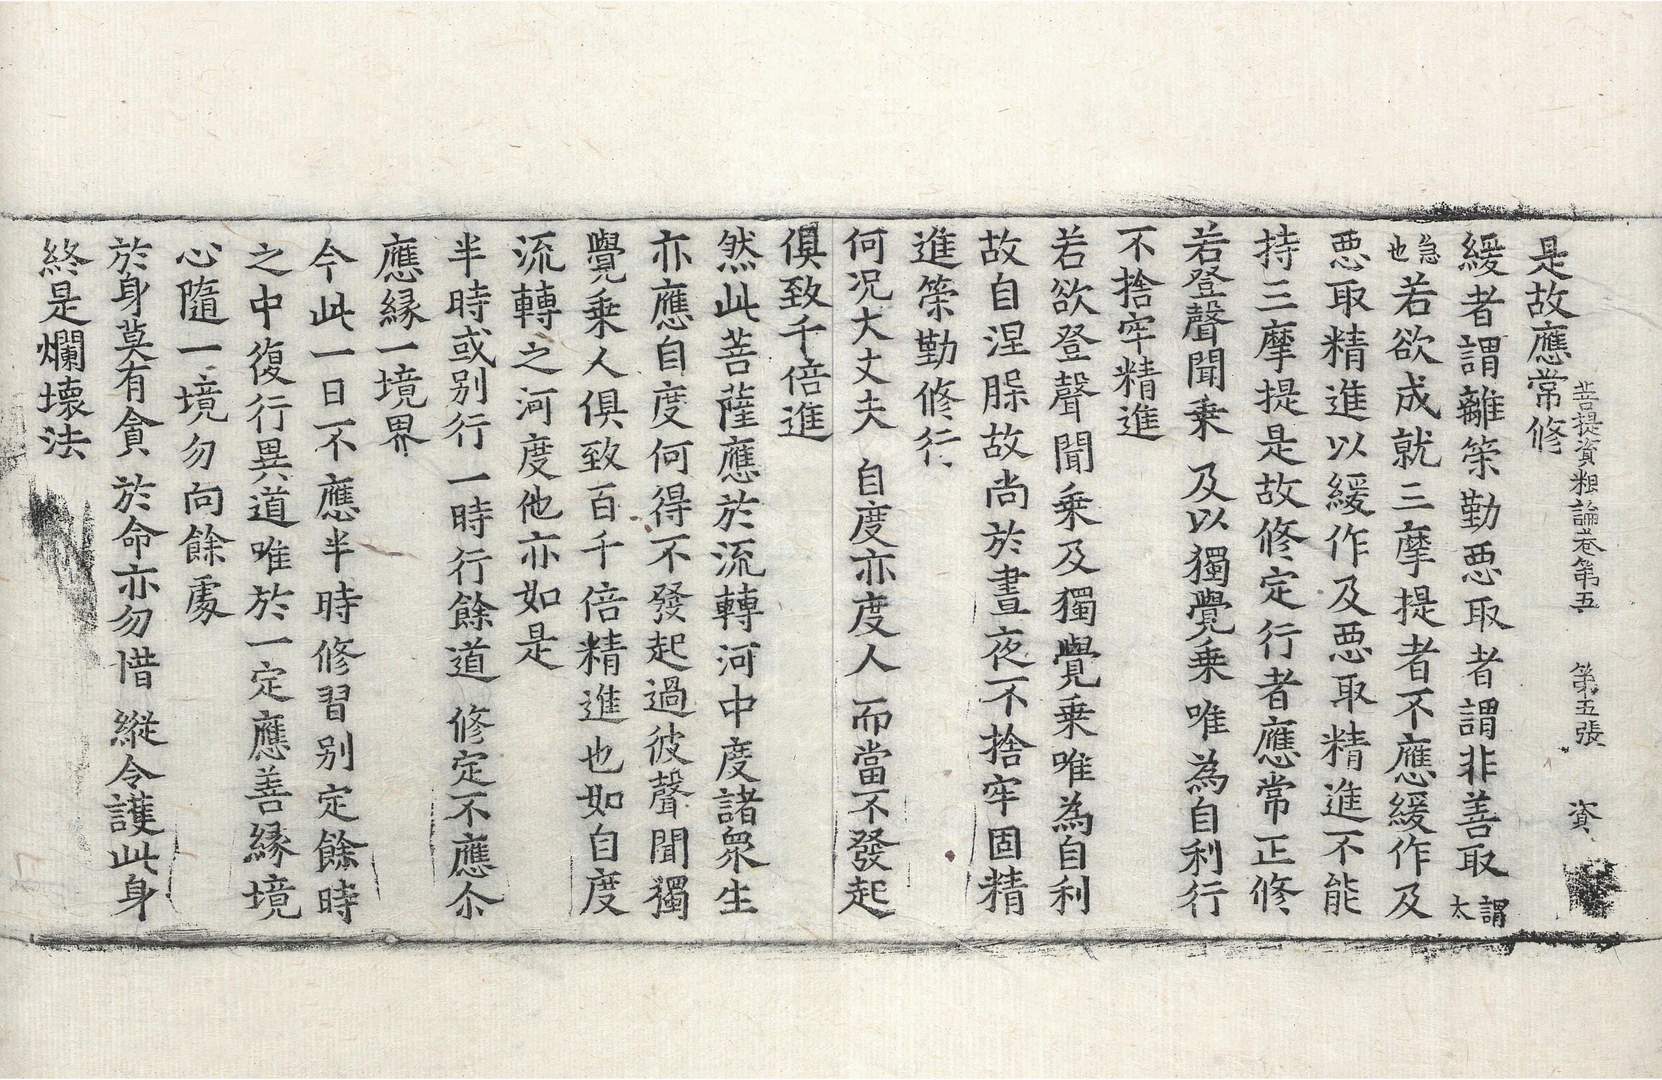 菩提資粮論卷第五 第五張 資
是故應常修
緩者謂離策勤惡取者謂非善取謂太
急也若欲成就三摩提者不應緩作及
惡取精進以緩作及惡取精進不能
持三摩提是故修定行者應常正修
若登聲聞乗 及以獨覺乗 唯為自利行
不捨牢精進
若欲登聲聞乗及獨覺乗唯為自利
故自涅槃故尚於晝夜不捨牢固精
進策勤修行
何况大丈夫 自度亦度人 而當不發起
俱致千倍進
然此菩薩應於流轉河中度諸衆生
亦應自度何得不發起過彼聲聞獨
覺乗人俱致百千倍精進也如自度
流轉之河度他亦如是
半時或别行 一時行餘道 修定不應尒
應縁一境界
今此一日不應半時修習别定餘時
之中復行異道唯於一定應善縁境
心隨一境勿向餘處
於身莫有貪 於命亦勿惜 縱令護此身
終是爛壞法